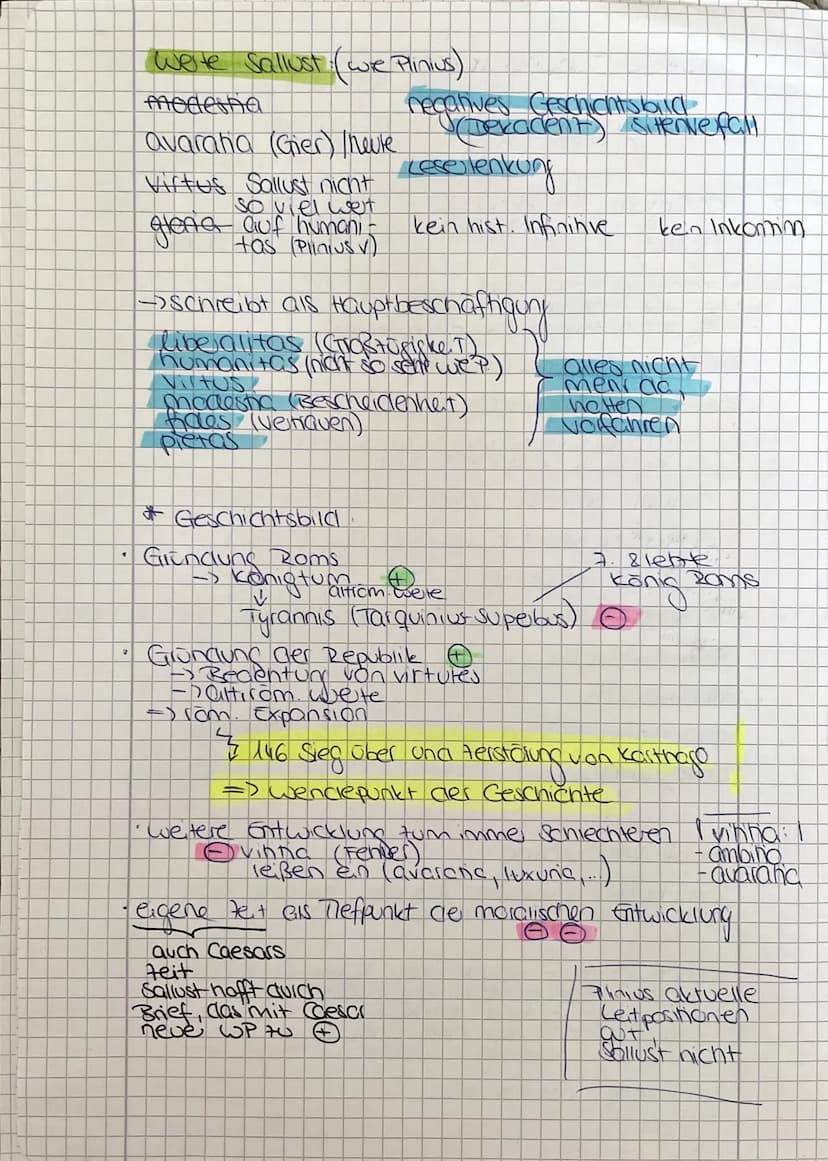 Werte Sallust: (wie Plinius)
modestia
negatives Geschichtsbild
(Dekadent) Sittenverfall
avaratia (Gier) / heute
Leserlenkung
virtus Sallust nicht
so viel wert
gloria auf humani-
tas (Plinius v)
kein hist. Infinitive
kein Inkonzinn
-> schreibt als Hauptbeschäftigung
liberalitas (Großzügigkeit)
humanitas (nicht so sehr wie P)
virtus
modestia (Bescheidenheit)
fides (vertrauen)
pietas
alles nicht
mehr da,
hatten
vorfahren
* Geschichtsbild
· Gründung Roms
-> Königtum +
altröm. werte
Tyrannis (Tarquinius Superbus) -
7. & letzte
König Roms
· Gründung der Republik +
-> Bedeutung von virtutes
-> altröm. werte
=> röm. Expansion
146 Sieg über und Zerstörung von Karthago
=> Wendepunkt der Geschichte
· weitere Entwicklung zum immer Schlechteren
- vinha (Fehler)
reißen ein (avaratia, luxuria,...)
! vinha: !
- ambitio
- avaratia
· eigene Zeit als Tiefpunkt der moralischen Entwicklung
- -
auch Caesars
Zeit
Sallust hofft durch
Brief, das mit Caesar
neue WP zu +
Plinius aktuelle
Leitpositionen
gut,
Sallust nicht